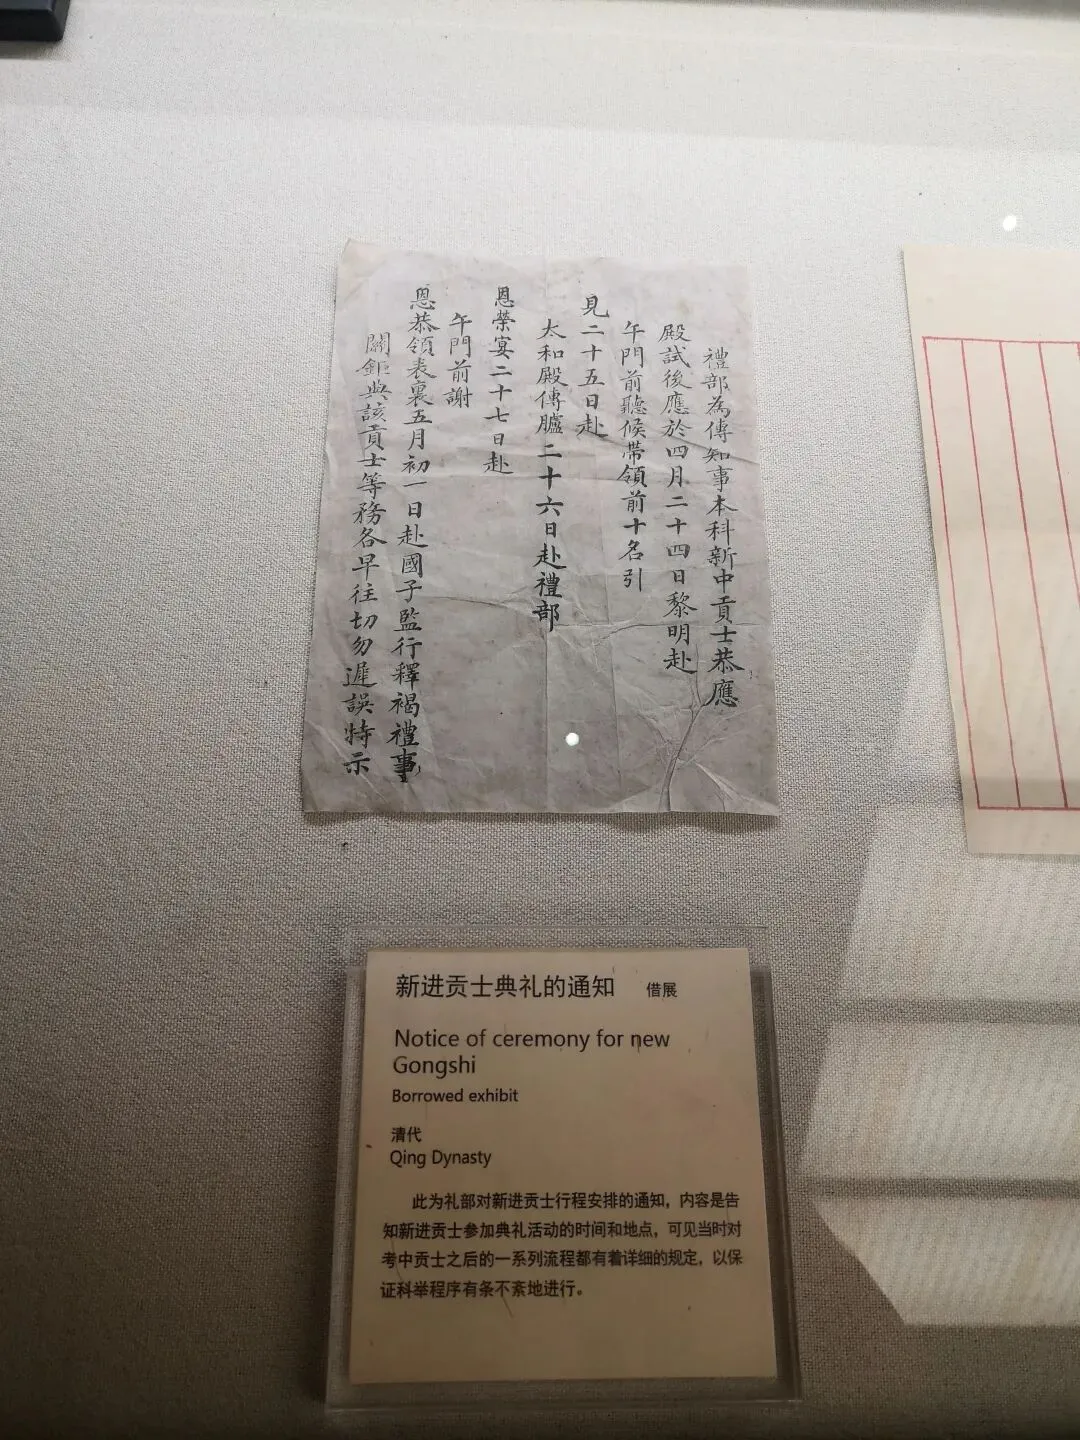 禮部為傳知事本科新中貢士恭應
殿試後應於四月二十四日黎明赴
午門前聽候帶領前十名引
見二十五日赴
太和殿傳臚二十六日赴禮部
恩榮宴二十七日赴
午門前謝
恩恭領表裏五月初一日赴國子監行釋褐禮事
關鉅典該貢士等務各早往切勿遲誤特示
新进贡士典礼的通知 借展
Notice of ceremony for new
Gongshi
Borrowed exhibit
清代
Qing Dynasty
此为礼部对新进贡士行程安排的通知，内容是告
知新进贡士参加典礼活动的时间和地点，可见当时对
考中贡士之后的一系列流程都有着详细的规定，以保
证科举程序有条不紊地进行。